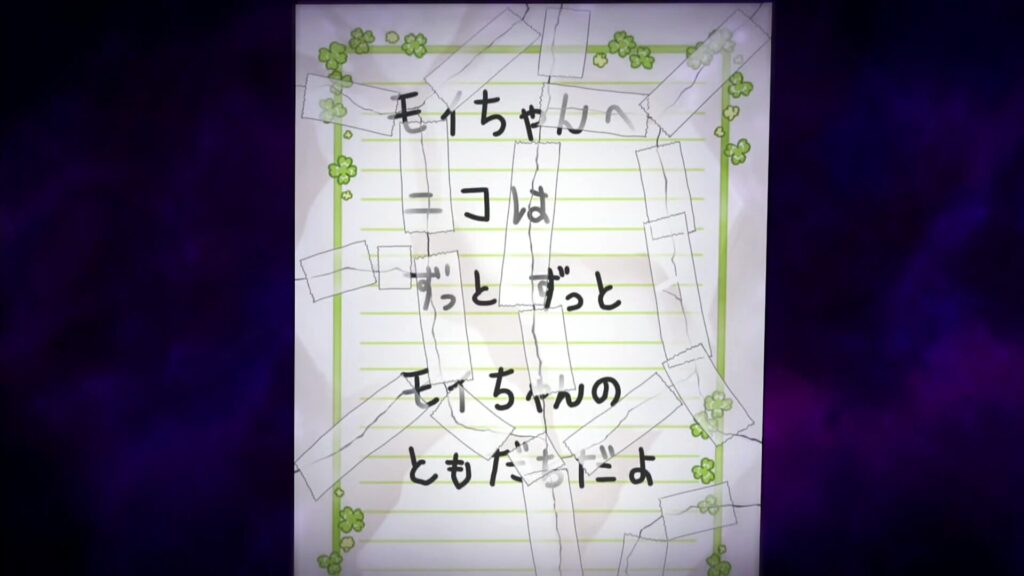 モイちゃんへ
ニコは
ずっと ずっと
モイちゃんの
ともだちだよ